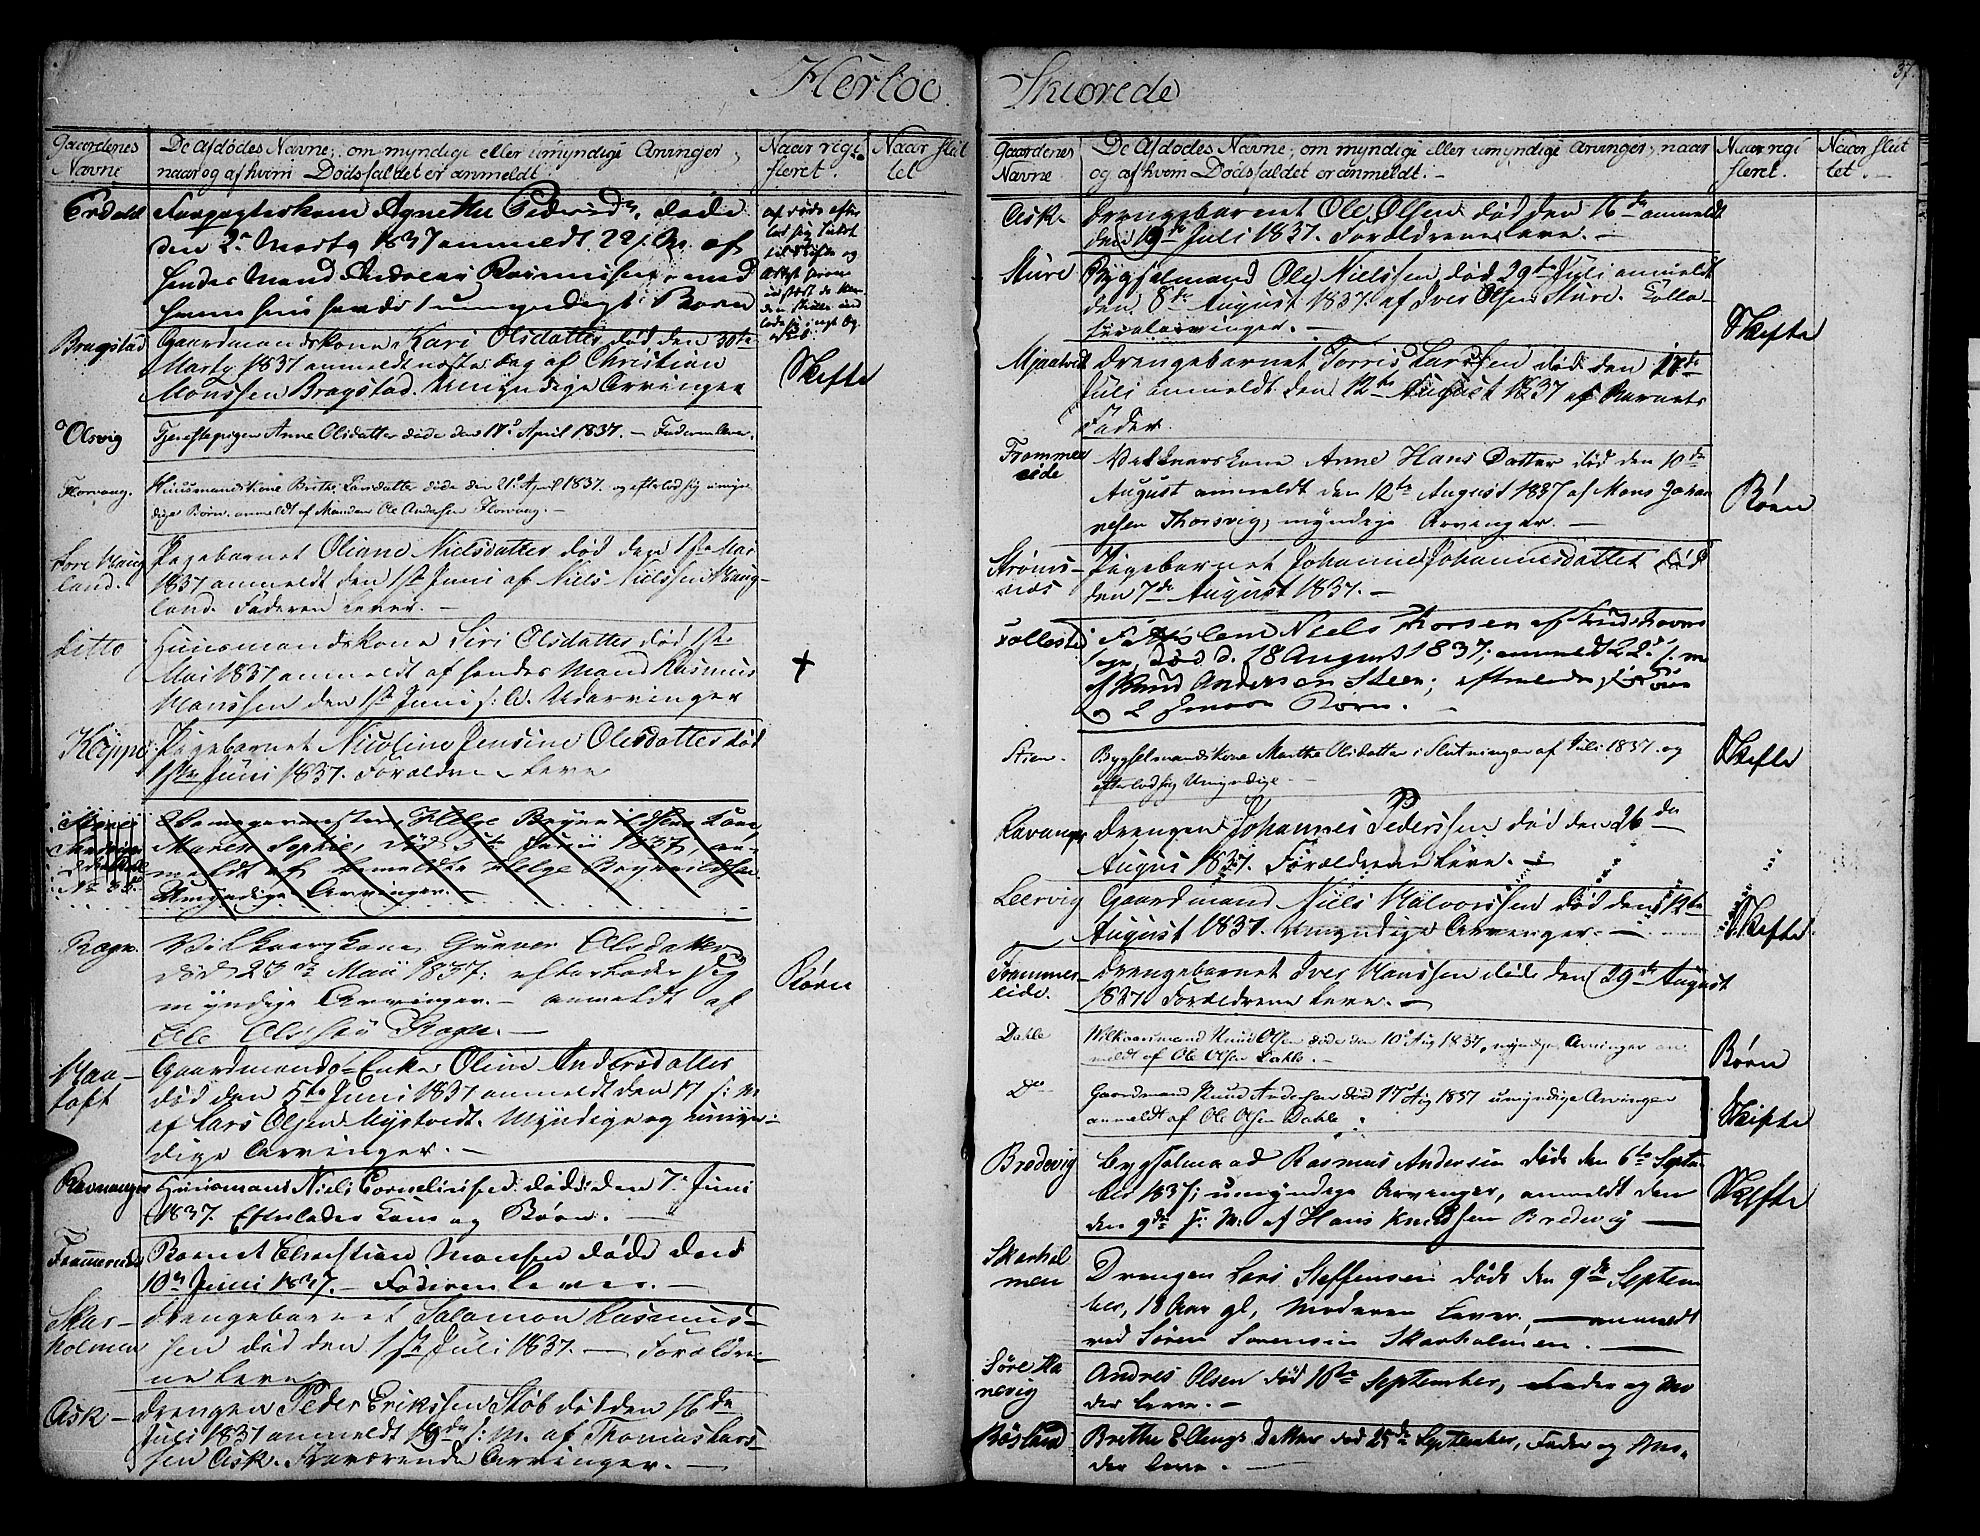 Herløe
Gaardenes Navne
De Afdødes Navne, om myndige eller umyndige Arvinger, naar og af hvem Dødsfaldet er anmeldt
Naar registeret.
Naar sluttet
Erdahl
Forpagterkone Agnethe Pedersd., døde
den 2. Marty 1837 anmeldt 22 af
hendes Mand Andreas Rasmussen, med
umyndigt Børn
Bragstad
Gaardmandskone Kari Olsdatter død den 30te
Marty 1837 anmeldt næste Dag af Christian
Monssen Bragstad. Umyndige Arvinger
Skifte
Olsvig
Tjenestepigen Anne Olsdatter døde den 17de April 1837. – Faderen lever.
Florvaag.
Huusmandskone Brithe Larsdatter døde den 21de April 1837. og efterlod sig umyn-
dige Børn. anmeldt af Manden Ole Andersen Florvaag. –
Søre Haug
land.
Pigebarnet Oliane Nielsdatter død den 1ste Mai
1837 anmeldt den 1ste Juni af Niels Nielssen Haug-
land. Faderen lever. –
Ditto
Huusmandskone Siri Olsdatter død 1ste
Mai 1837 anmeldt af hendes Mand Rasmus
Hanssen den 1ste Juni s: A. Udarvinger
+
Kleppe
Pigebarnet Nicoline Jensine Olesdatter død
1ste Juni 1837. Forældrene leve
Helge Brynildsens Kone
Maren Sophie, død 5te Junii 1837, an-
meldt af bemeldte Helge Brynildsen
Umyndige Arvinger. –
Ragn.
Vilkaarskone Olsdatter
død 23de Maii 1837; efterlader sig
myndige Arvinger. – anmeldt af
Ole Olssen
Børn
Haa-
toft
Gaardmands Enke Oline Andersdatter
død den 5te Juni 1837 anmeldt den 17 s: M
af Lars Olsen Mystvedt. Myndige og umyn-
dige Arvinger. –
Ravnanger
Huusmand Niels Corneliussen døde den 7de Juni
1837. Efterlader Kone og Børn. –
Frammereide
Barnet Christian Monsen døde den
10de Juni 1837. – Faderen lever. –
Skar-
holmen
Drengebarnet Salamon Rasmus-
sen død den 1ste Juli 1837. – Forældre-
ne leve
Ask –
Drengen Peder Erikssen Støb død den 16de
Juli 1837 anmeldt 19de s: M. af Thomas Lars-
sen Ask. Fraværende Arvinger. –
Skibrede
37.
Gaardenes Navne
De Afdødes Navne, om myndige eller umyndige Arvinger, naar
og af hvem Dødsfaldet er anmeldt. –
Naar registeret.
Naar sluttet. –
Ask –
Drengebarnet Ole Olsen død den 16de anmeldt
den 19de Juli 1837. Forældrene leve. –
Sture
Bygselmand Ole Nielssen død 29te Juli anmeldt
den 8de August 1837 af Iver Olsen Sture. Colla-
teralarvinger. –
Skifte
Mjaatvedt
Drengebarnet Torris Larssen død den
Juli anmeldt den 12te August 1837 af Barnets
Fader.
Frommer
eide
Vilkaarskone Anne Hans Datter død den 10de
August anmeldt den 12te August 1837 af Mons Johan
nesen Thorsvig, myndige Arvinger. –
Børn
Strøms-
næs
Pigebarnet Johanne Johannesdatter død
den 7de August 1837. –
Follese
Fattiglem Niels Thorsen af
Sogn, død d. 18 August 1837; anmeldt 22de s. M
af Knud Andersen Steen; efterlader sig Kone
og 2 smaae Børn. –
Steen.
Bygselmandskone Marthe Olsdatter i Slutningen af Juli 1837. og
efterlod sig Umyndige. –
Skifte
Ravanger
Drengen Johannes Pederssen død den 26de
August 1837. Forældrene leve. –
Leervig
Gaardmand Niels Halvorssen død den 12te
August 1837. umyndige Arvinger. –
Skifte
Frammer-
eide.
Drengebarnet Iver Hanssen døde den 29de August
1837 Forældrene leve. –
Dahle
Wilkaarsmand Knud Olsen døde den 10de Aug 1837, myndige Arvinger an-
meldt af Ole Olsen Dahle. –
Børn
Do
Gaardmand Knud Andersen død 17de Aug 1837 umyndige Arvinger
anmeldt af Ole Olsen Dahle.
Skifte
Bredevig
Bygselmand Rasmus Andersen døde den 6te Septem-
ber 1837; umyndige Arvinger, anmeldt den
den 9de s: M: af Hans Knudsen Bredevig
Skifte
Skarhol
men
Drengen Lars Steffensen døde den 9de Septem-
ber, 18 Aar gl, Moderen lever, – anmeldt
ved Søren Sørensen Skarholmen. –
Søre Ha
nevig
Andres Olsen død 18de September, Fader og Mo-
der leve. –
Røsland
Brithe Ellings Datter død 25de September, Fader og Mo-
der leve. –